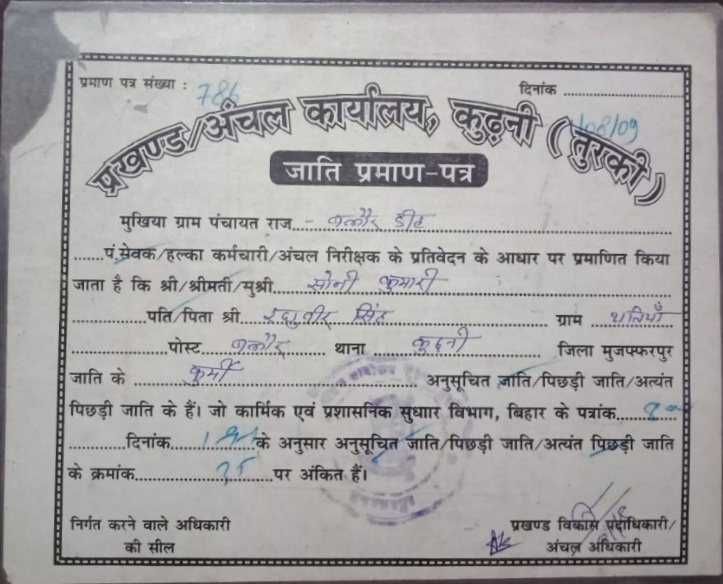 प्रमाण पत्र संख्या : 786 दिनांक ...................../08/09
प्रखण्ड/अंचल कार्यालय, कुढ़नी (तुरकी)
जाति प्रमाण-पत्र
मुखिया ग्राम पंचायत राज - बलौर डीह
......पं.सेवक/हल्का कर्मचारी/अंचल निरीक्षक के प्रतिवेदन के आधार पर प्रमाणित किया
जाता है कि श्री/श्रीमती/सुश्री सोनी कुमारी
...............पति/पिता श्री रघुवीर सिंह ग्राम
....................पोस्ट बलौर थाना कुढ़नी जिला मुजफ्फरपुर
जाति के कुर्मी अनुसूचित जाति/पिछड़ी जाति/अत्यंत
पिछड़ी जाति के हैं। जो कार्मिक एवं प्रशासनिक सुधाार विभाग, बिहार के पत्रांक
............दिनांक के अनुसार अनुसूचित जाति/पिछड़ी जाति/अत्यंत पिछड़ी जाति
के क्रमांक पर अंकित हैं।
निर्गत करने वाले अधिकारी
की सील
प्रखण्ड विकास पदाधिकारी/
अंचल अधिकारी